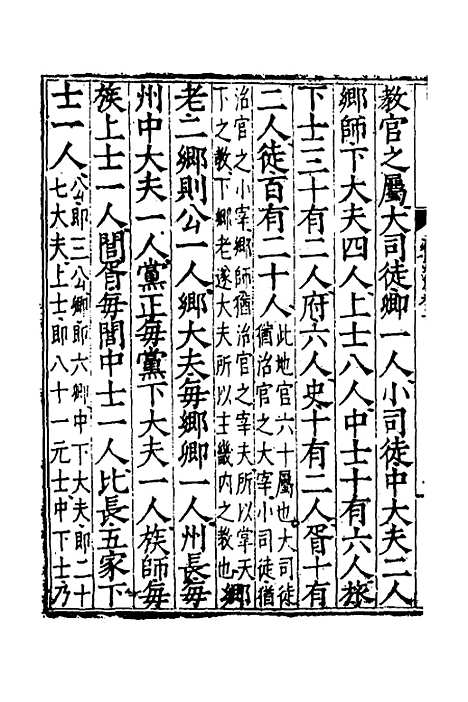 教官之屬大司徒卿一人小司徒中大夫二人
鄉師下大夫四人上士八人中士十有六人旅
下士三十有二人府六人史十有二人胥十有
二人徒百有二十人此地官六十屬也大司徒
猶治官之大宰小司徒猶
治官之小宰鄉師猶治官之宰夫所以掌天
下之教下鄉老遂大夫所以主畿内之教也鄉
老二鄉則公一人鄉大夫每鄉卿一人州長每
州中大夫一人黨正每黨下大夫一人族師每
族上士一人閭胥每閭中士一人比長五家下
士一人公即三公卿即六卿中下大夫即二十
七大夫上士即八十一元士中下士乃